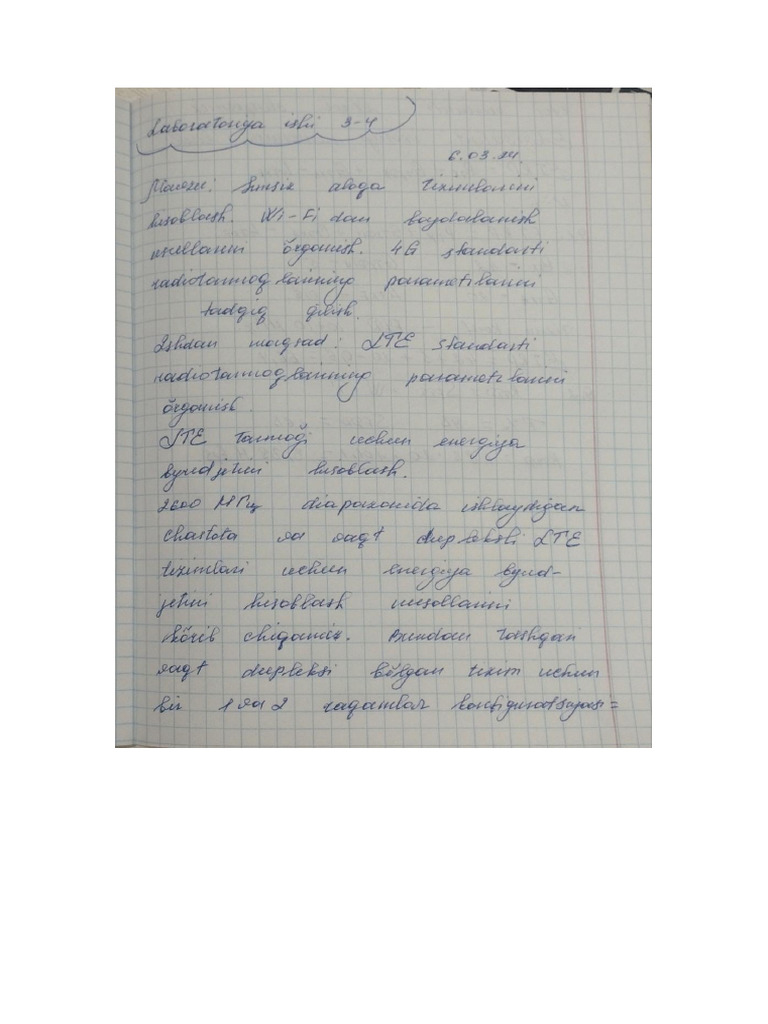 Laboratoriya ishi 3-4
6.03.24.
Mavzu: Simsiz aloqa tizimlarini
hisoblash. Wi-Fi dan foydalanish
usullarini õrganish. 4G standarti
radiotarmoqlarining parametrlarini
tadqiq qilish.
Ishdan maqsad: LTE standarti
radiotarmoqlarining parametrlarini
õrganish.
LTE tarmoği uchun energiya
byudjetini hisoblash.
2600 МГц diapazonida ishlaydigan
chastota va vaqt dupleksli LTE
tizimlari uchun energiya byud-
jetini hisoblash misollarini
kõrib chiqamiz. Bundan tashqari
vaqt dupleksi bõlgan tizim uchun
bir 1 va 2 raqamlar konfiguratsiyasi=